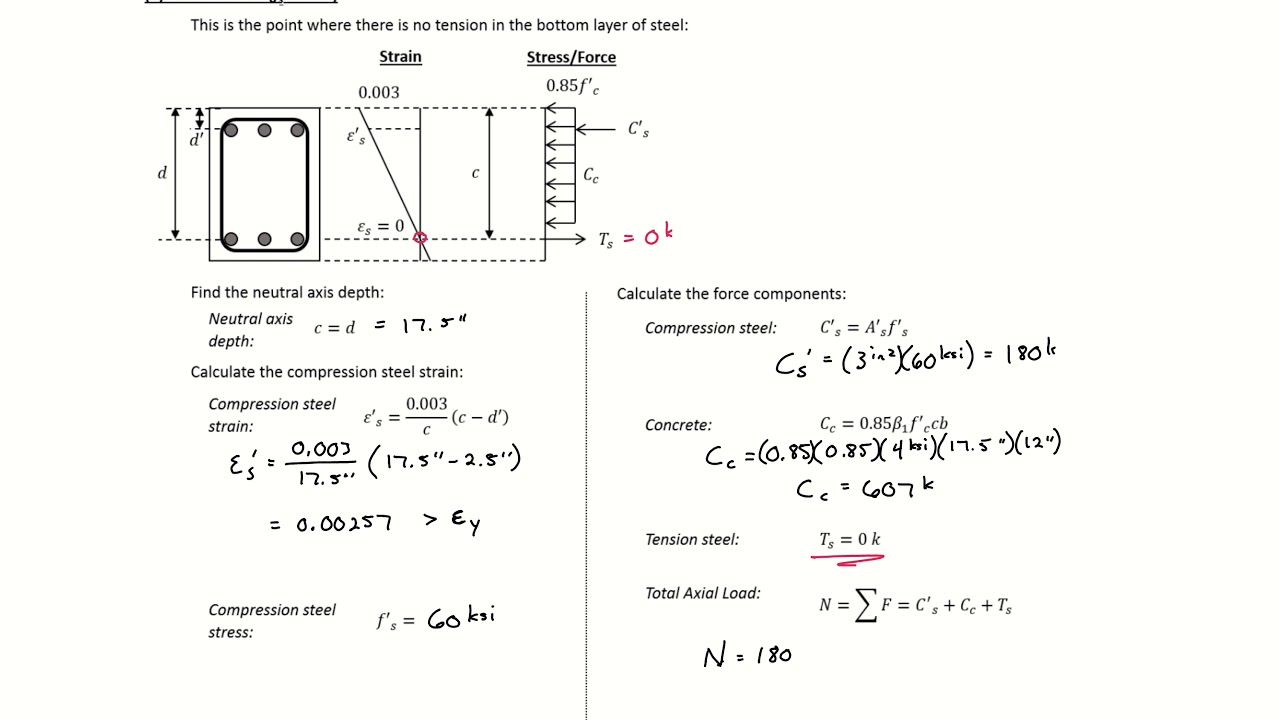 This is the point where there is no tension in the bottom layer of steel:
Strain
Stress/Force
0.003
0.85f'c
d'
ε's
C's
d
c
Cc
εs = 0
Ts = 0k
Find the neutral axis depth:
Neutral axis depth: c = d = 17.5"
Calculate the compression steel strain:
Compression steel strain: ε's = 0.003/c (c − d')
εs' = 0.003/17.5" (17.5" − 2.5")
= 0.00257 > εy
Compression steel stress: f's = 60 ksi
Calculate the force components:
Compression steel: C's = A's f's
Cs' = (3 in²)(60 ksi) = 180 k
Concrete: Cc = 0.85β1f'c cb
Cc = (0.85)(0.85)(4 ksi)(17.5")(12")
Cc = 607 k
Tension steel: Ts = 0 k
Total Axial Load: N = ∑ F = C's + Cc + Ts
N = 180